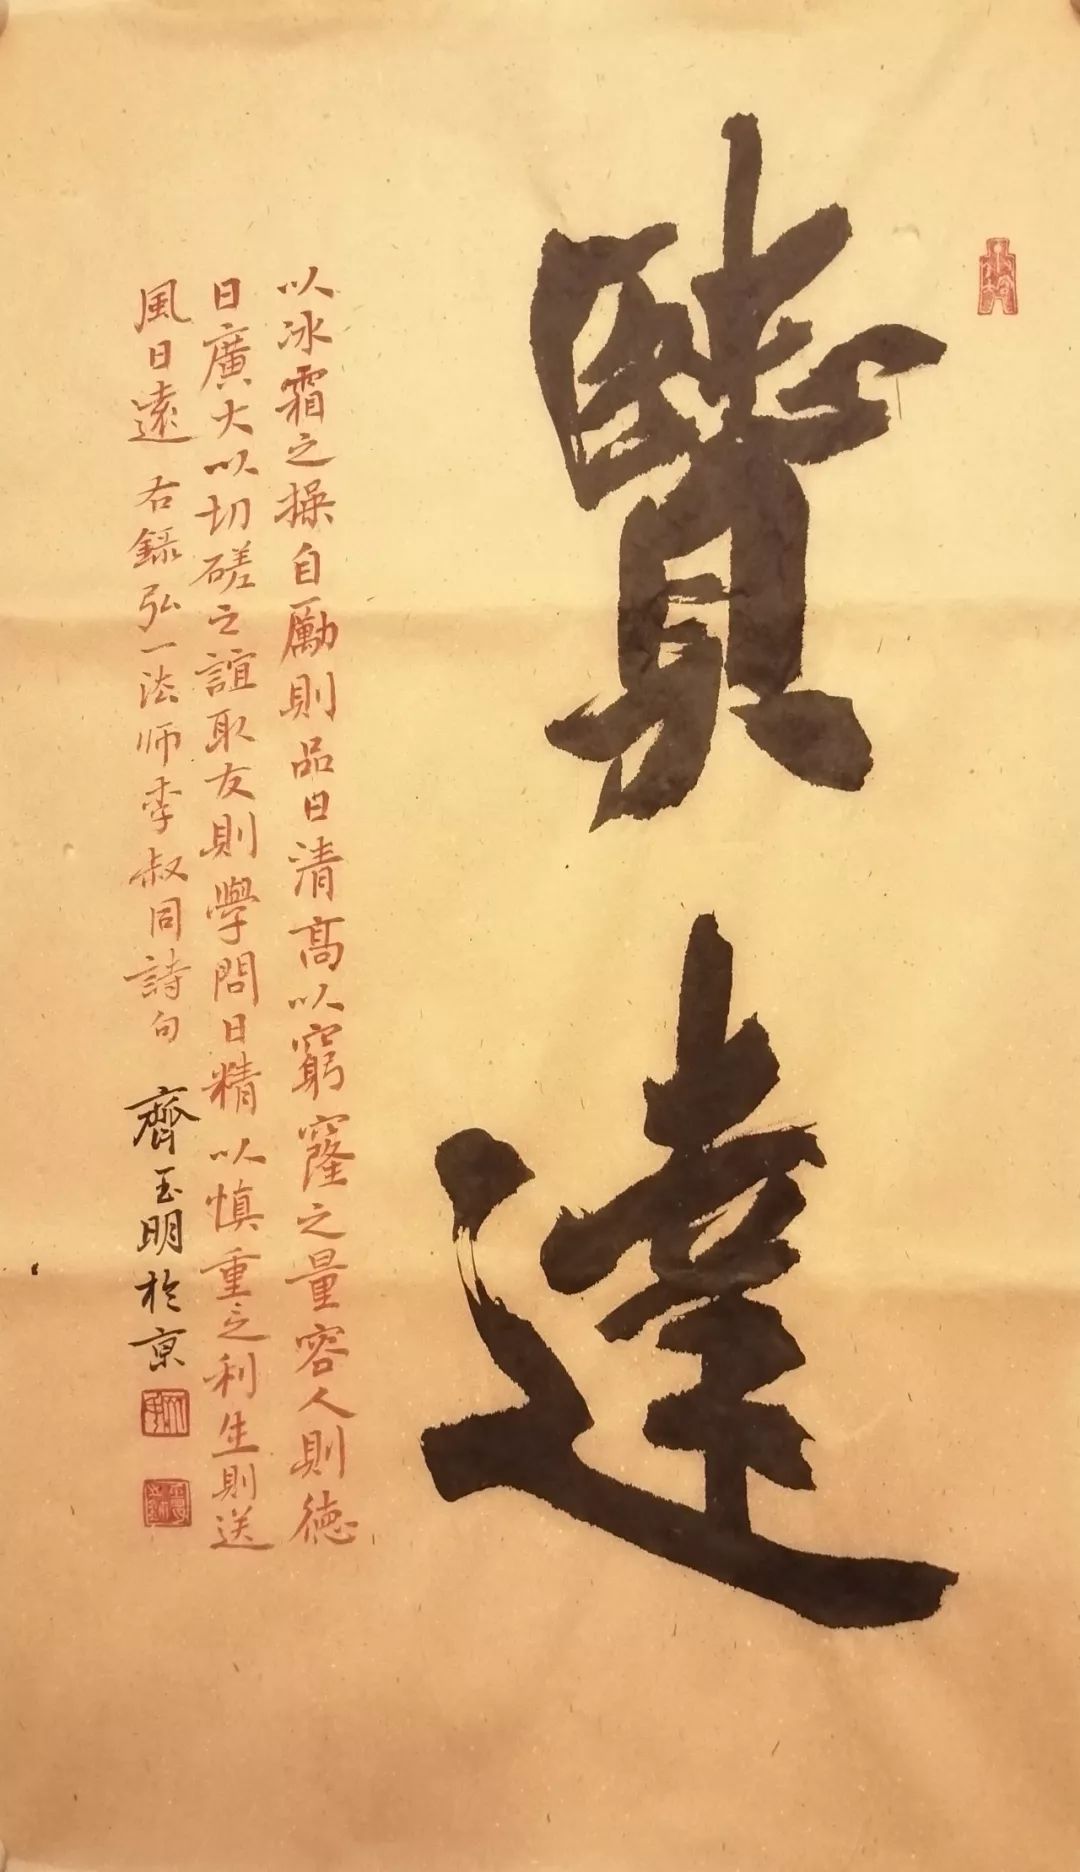 賢達
以冰霜之操自勵則品日清高以窮窿之量容人則德
日廣大以切磋之誼取友則學問日精以慎重之利生則道
風日遠 右録弘一法师李叔同詩句 齊玉明於京